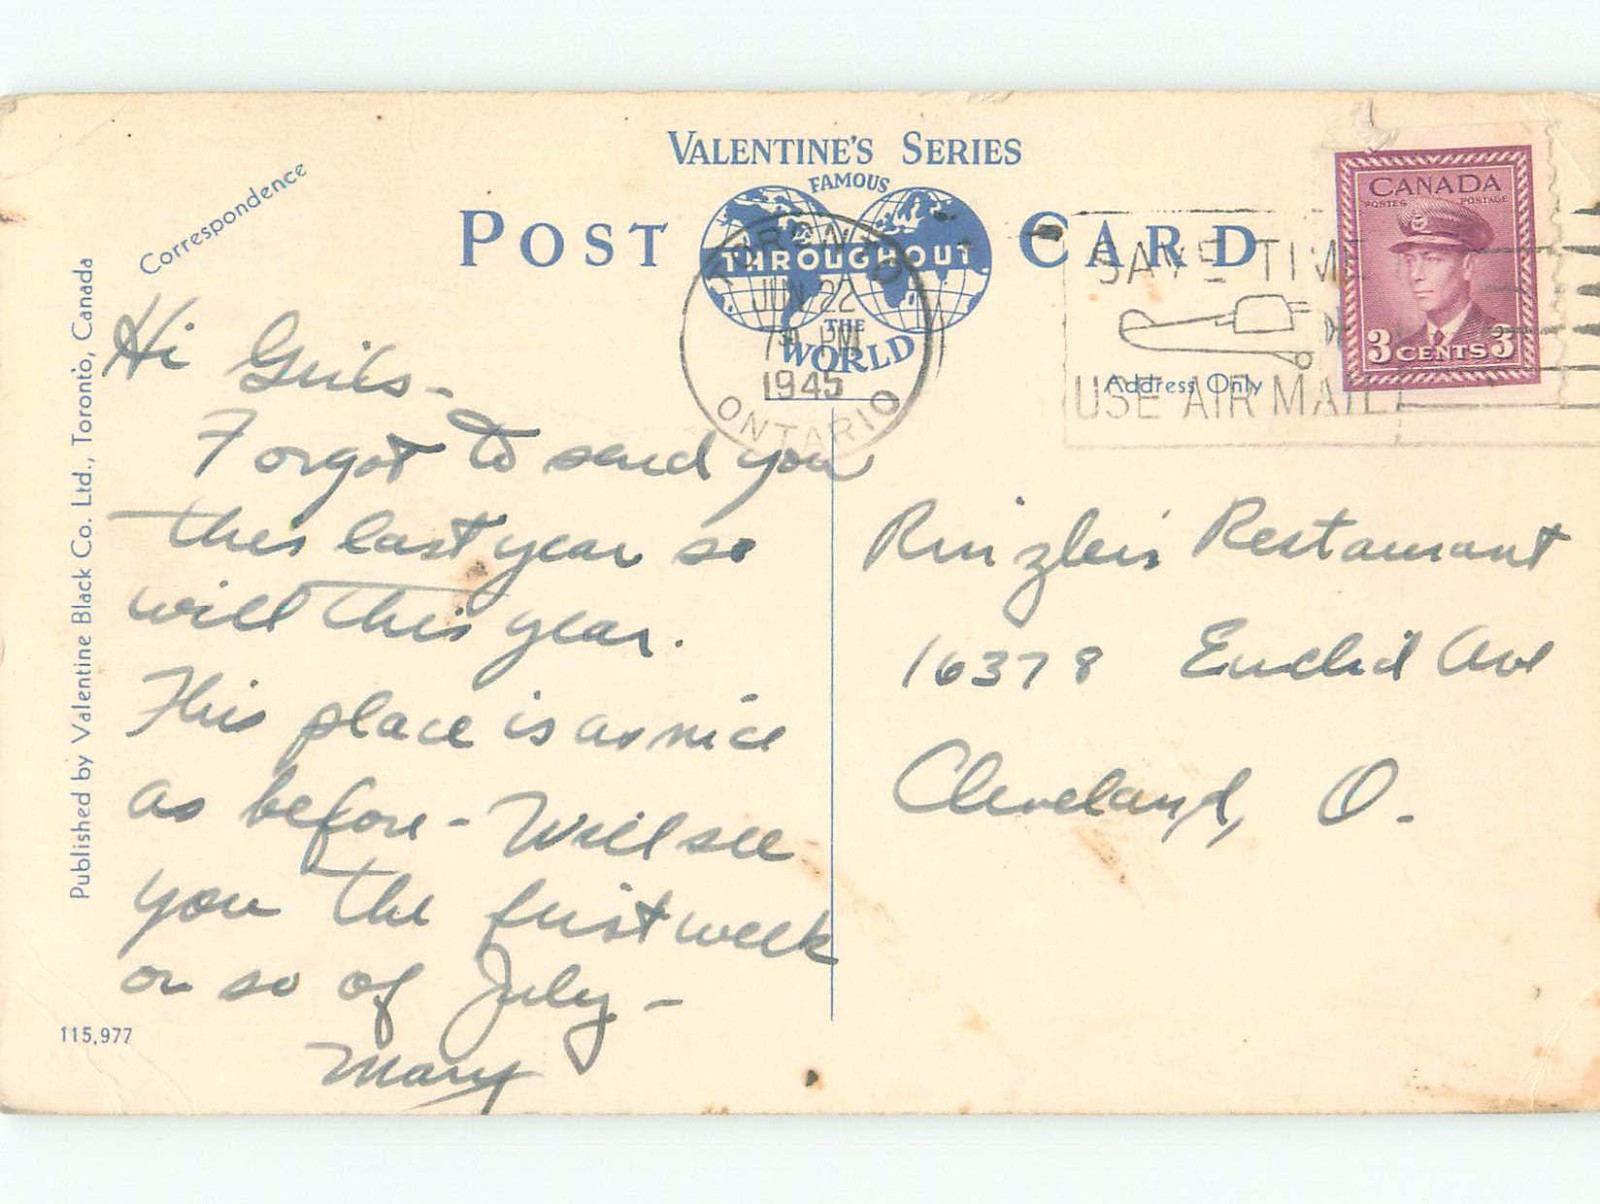 VALENTINE'S SERIES
FAMOUS
POST CARD
THROUGHOUT
THE
WORLD
Correspondence
Address Only
Published by Valentine Black Co. Ltd., Toronto, Canada
115,977
CANADA
POSTES POSTAGE
3 CENTS 3
TORONTO
JUN 22
PM
1945
ONTARIO
SAVE TIME
USE AIR MAIL
Hi Girls -
Forgot to send you
this last year so
will this year.
This place is as nice
as before - Will see
you the first week
or so of July -
Mary
Rinzler's Restaurant
16378 Euclid Ave
Cleveland, O.